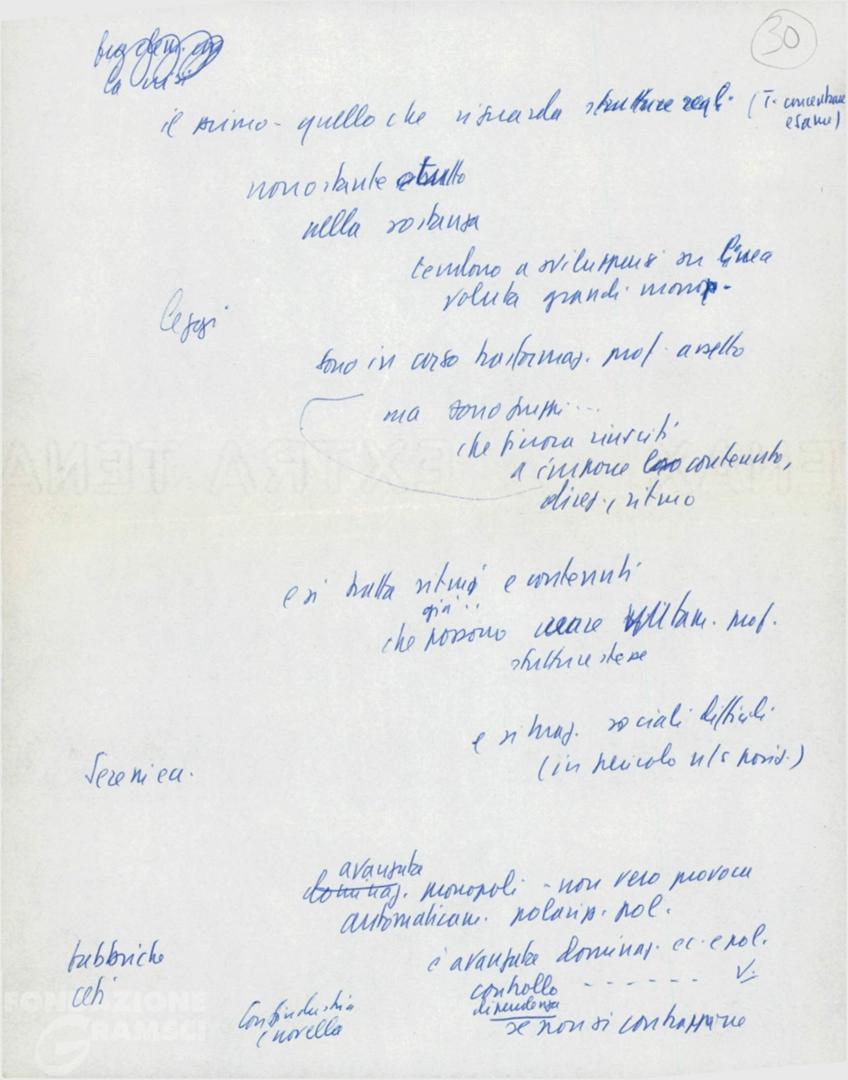 30
la crisi
il primo - quello che riguarda strutture reali. (T. concentrare
esame)
nonostante tutto
nella sostanza
tendono a svilupparsi su linea
voluta grandi monop.
leggi
sono in corso trasformaz. prof. assetto
ma sono gruppi...
che finora riusciti
a imporre loro contenuto,
direz., ritmo
e si tratta ritmi e contenuti
già...
che possono creare prof.
strutture stesse
e situaz. sociali difficili
(in pericolo n/s posiz.)
avanzata
dominaz. monopoli - non vero provoca
automaticam. polariz. pol.
fabbriche
ceti
è avanzata dominaz. ec. e pol.
controllo - - - - - - V.
dipendenza
se non si contrappone
Confindustria
Novella
FONDAZIONE
GRAMSCI
EXTRA